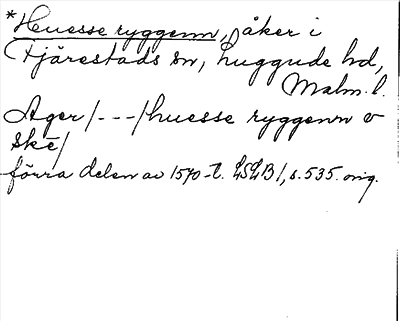 *Huesse ryggenn, åker i
Fjärestads sn, Luggude hd,
Malm. l.
Ager/---/huesse ryggenn e
ske/
förra delen av 1570-t. LSLB 1, s. 535. orig.